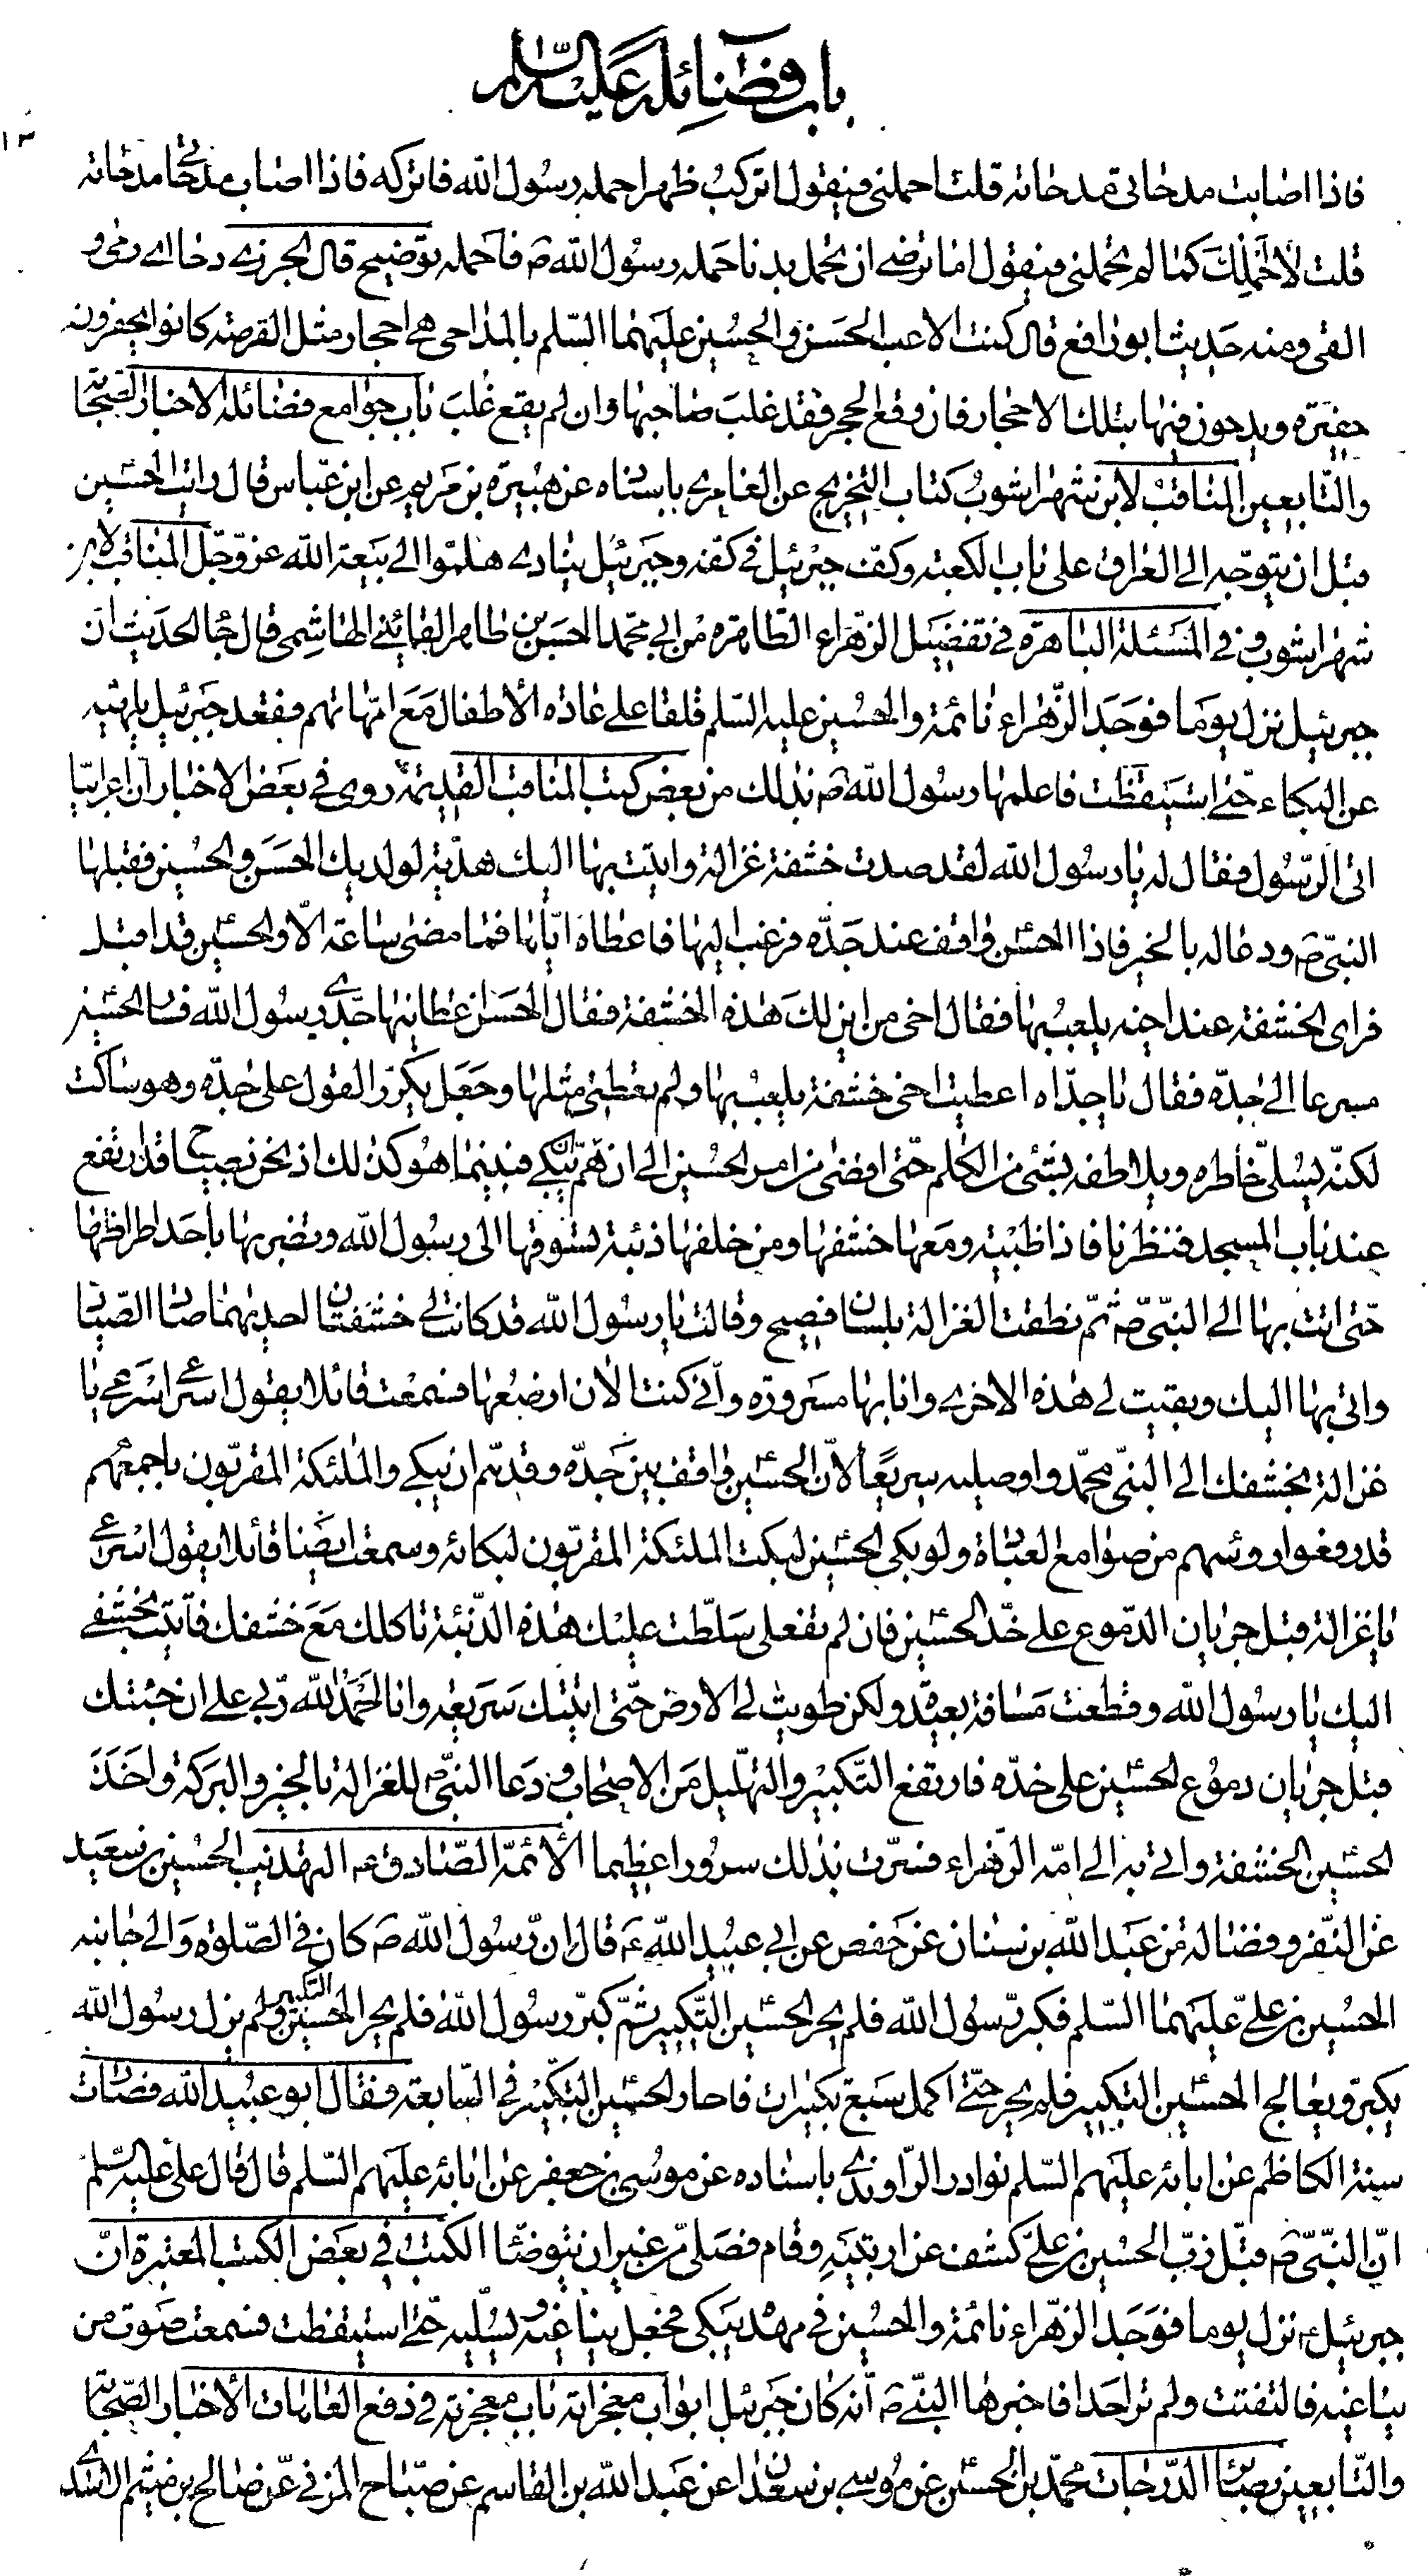 باب فضائله عليه السلام
١٣
فاذا اصابت مدحاتي مدحاته قلت احملني فيقول اتركب ظهرا حمله رسول الله فاتركه فاذا اصاب مدحاته مدحاتي
قلت لا احملك كما لم تحملني فيقول اما ترضى ان تحمل بدنا حمله رسول الله ص فاحمله توضيح قال الجزري دحا اي رمى و
القى ومنه حديث ابو رافع قال كنت الاعب الحسن والحسين عليهما السلم بالمداحي هي احجار مثل القرصة كانوا يحفرون
حفيرة ويدحون فيها بتلك الاحجار فان وقع الحجر فقد غلب صاحبها وان لم يقع غلب باب جوامع فضائله الاخبار الصحابة
والتابعين المناقب لابن شهراشوب كتاب التخريج عن العامري باسناده عن هبيرة بن مريم عن ابن عباس قال رايت الحسين
قبل ان يتوجه الى العراق على باب الكعبة وكف جبرئيل في كفه وجبرئيل ينادي هلموا الى بيعة الله عز وجل المناقب لابن
شهراشوب وفي المسئلة الباهرة في تفضيل الزهراء الطاهرة من ابي محمد الحسن بن طاهر القائني الهاشمي قال جا الحديث ان
جبرئيل نزل يوما فوجد الزهراء نائمة والحسين عليه السلم قلقا على عادة الأطفال مع امهاتهم فقعد جبرئيل يلهيه
عن البكاء حتى استيقظت فاعلمها رسول الله ص بذلك من بعض كتب المناقب القديمة روى في بعض الاخبار ان اعرابيا
اتى الرسول فقال له يا رسول الله لقد صدت خشفة غزالة واتيت بها اليك هدية لولديك الحسن والحسين فقبلها
النبي ص ودعا له بالخير فاذا الحسن واقف عند جده فرغب اليها فاعطاه اياها فما مضى ساعة الا والحسين قد اقبل
فراى الخشفة عند اخيه يلعب بها فقال اخي من اين لك هذه الخشفة فقال الحسن اعطانيها جدي رسول الله فسار الحسين
مسرعا الى جده فقال يا جداه اعطيت اخي خشفة يلعب بها ولم تعطني مثلها وجعل يكرر القول على جده وهو ساكت
لكنه يسلي خاطره ويلاطفه بشئ من الكلم حتى افضى من امر الحسين الى ان هم ان يبكي فبينما هو كذلك اذ نحن بصياح قد ارتفع
عند باب المسجد فنظرنا فاذا ظبية ومعها خشفها ومن خلفها ذئبة تسوقها الى رسول الله وتضربها باحد اطرافها
حتى اتت بها الى النبي ص ثم نطقت الغزالة بلسان فصيح وقالت يا رسول الله قد كانت لي خشفتان احديهما صادها الصياد
واتى بها اليك وبقيت لي هذه الاخرى وانا بها مسرورة واني كنت الان ارضعها فسمعت قائلا يقول اسرعي اسرعي يا
غزالة بخشفك الى النبي محمد واوصليه سريعا لان الحسين واقف بين جده وقد هم ان يبكي والملئكة المقربون باجمعهم
قد رفعوا رؤسهم من صوامع العبادة ولو بكى الحسين لبكت الملئكة المقربون لبكائه وسمعت ايضا قائلا يقول اسرعي
يا غزالة قبل جريان الدموع على خد الحسين فان لم تفعلي سلطت عليك هذه الذئبة تاكلك مع خشفك فاتيت بخشفي
اليك يا رسول الله وقطعت مسافة بعيدة ولكن طويت لي الارض حتى اتيتك سريعة وانا احمد الله ربي على ان جئتك
قبل جريان دموع الحسين على خده فارتفع التكبير والتهليل من الاصحاب و دعا النبي ص للغزالة بالخير والبركة واخذ
الحسين الخشفة واتى به الى امه الزهراء فسرت بذلك سرورا عظيما الأئمة الصادق ع التهذيب الحسين بن سعيد
عن النضر وفضالة عن عبد الله بن سنان عن حفص عن ابي عبد الله ع قال ان رسول الله ص كان في الصلوة والى جانبه
الحسين بن علي عليهما السلم فكبر رسول الله فلم يحر الحسين التكبير ثم كبر رسول الله فلم يحر الحسين التكبير ولم يزل رسول الله
يكبر ويعالج الحسين التكبير فلم يحر حتى اكمل سبع تكبيرات فاحار الحسين التكبير في السابعة فقال ابو عبد الله فصارت
سنة الكاظم عن ابائه عليهم السلم نوادر الراوندي باسناده عن موسى بن جعفر عن ابائه عليهم السلم قال قال علي عليه السلم
ان النبي ص قبل زب الحسين بن علي كشف عن اربيته وقام فصلى من غير ان يتوضأ الكتب في بعض الكتب المعتبرة ان
جبرئيل ع نزل يوما فوجد الزهراء نائمة والحسين في مهده يبكي فجعل يناغيه ويسليه حتى استيقظت فسمعت صوت من
يناغيه فالتفتت ولم تر احدا فاخبرها النبي ص انه كان جبرئيل ابواب معجزاته باب معجزته في دفع العاهات الأخبار الصحابة
والتابعين بصائر الدرجات محمد بن الحسين عن موسى بن سعدان عن عبد الله بن القاسم عن صباح المزني عن صالح بن ميثم الاسدي